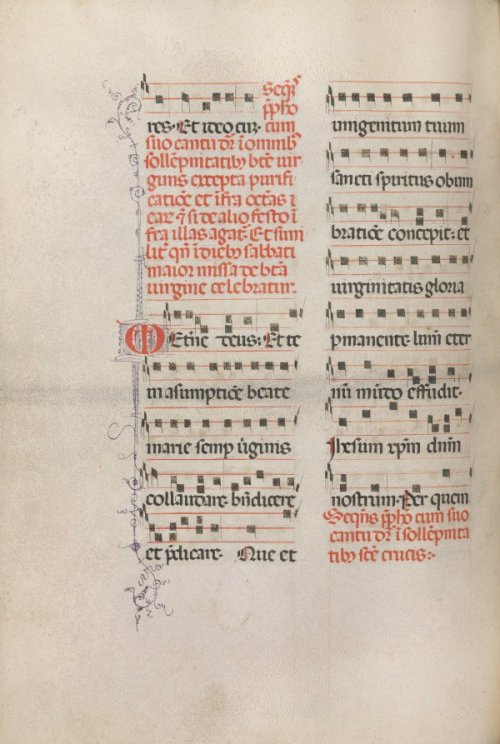 Seqns
ppho
res. Et ideo cur. cum
suo cantu dr i omnib
sollepnitatib bte vir
ginis excepta purifi
catioe et ifra octas i
ea
fra illas agat. Et simi
lit qn i dieb sabbati
maior missa de bta
virgine celebratur.
Eterne deus: Et te
in asumptioe beate
marie semp virginis
collaudare. bndicere
et pdicare. Que et
unigenitum tuum
sancti spiritus obum
bratioe concepit: et
virginitatis gloria
pmanente. lum eter
nu mudo effudit.
Ihesum xpm dnm
nostrum. Per quem
Seqns ppho cum suo
cantu dr i sollepnita
tib sce crucis: